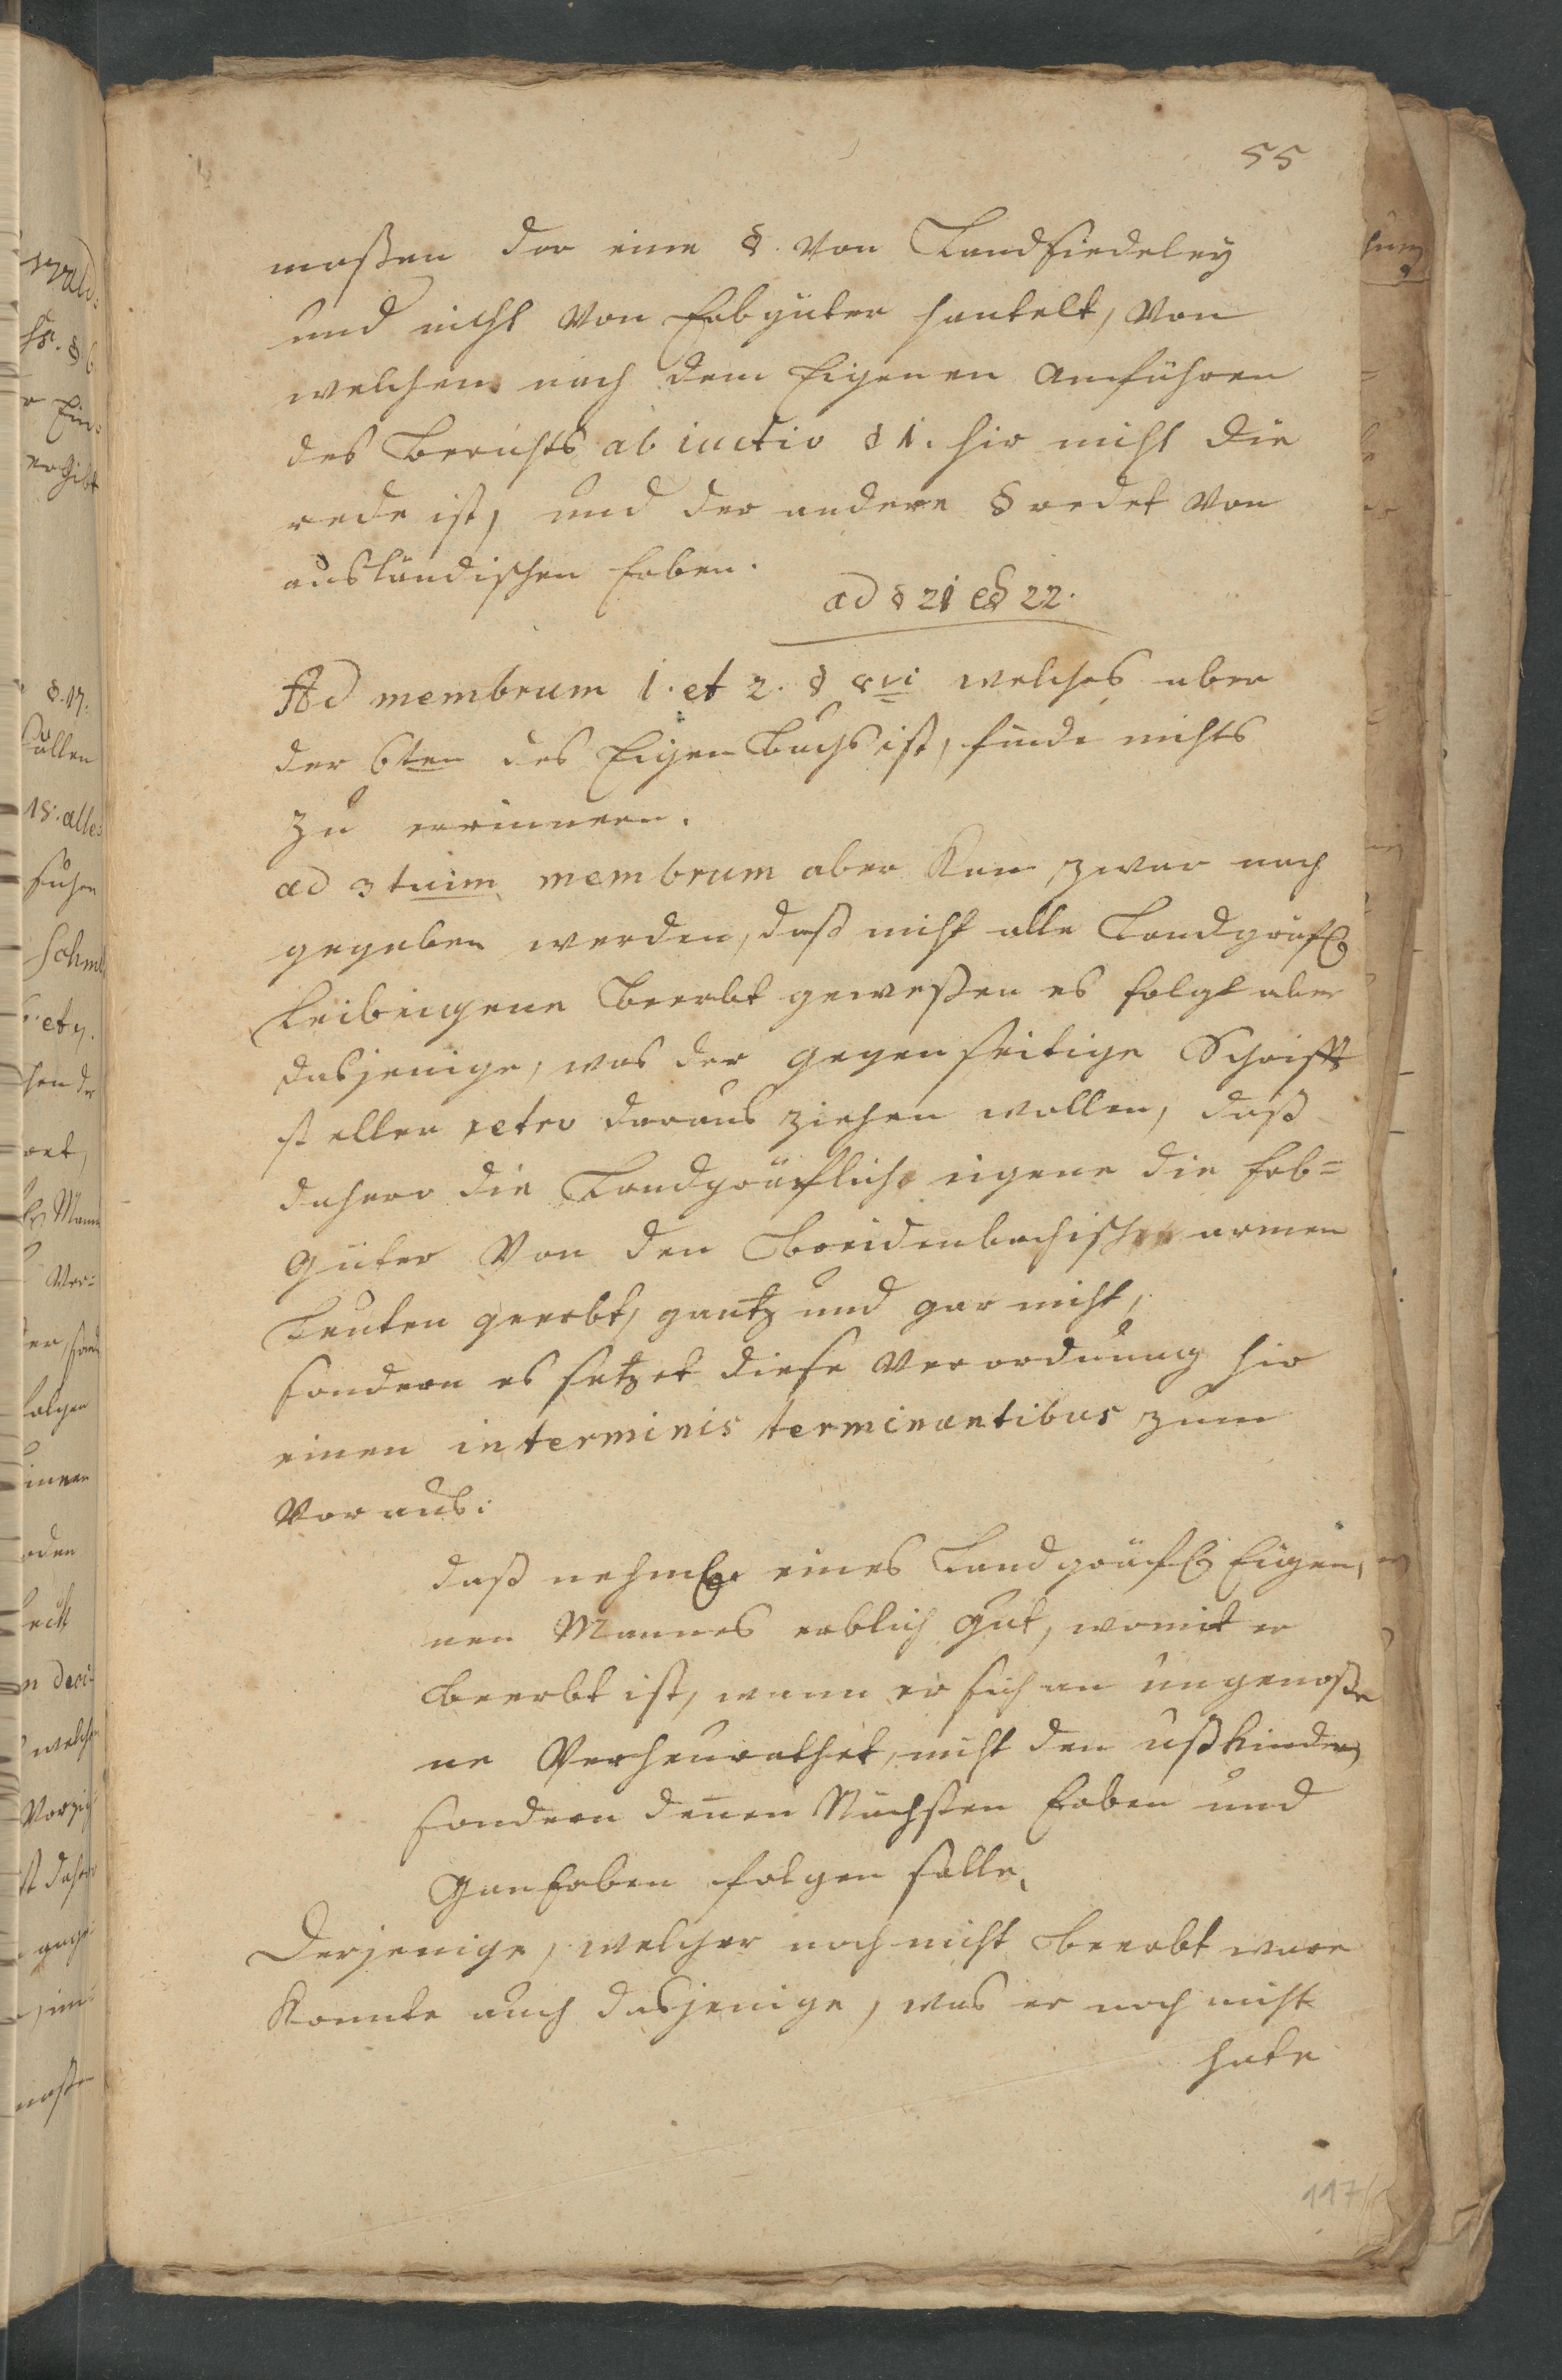 55
maßen der eine §. von Landsiedeley
und nicht von Erbgüter hantelt, von
welchem nach dem Eigenen Anführen
des Berichts ab inctio § 1. hir nicht die
rede ist, und der andere § redet von
ausländischen Erben.
ad § 21 et 22.
Ad membrum 1. et 2. § welches aber
der 6ten des Eigen Buchs ist, finde nichts
zu erinnern.
ad 3 tuim membrum aber kan zwar nach
gegeben werden, daß nicht alle Landgräfl
Leibeigene Beerbt geweßen es folgt aber
dasjenige, was der gegenseitige Schrifft
steller retro daraus ziehen wollen, daß
dahero die Landgräfliche eigene die Erb=
güter von den Breidenbachischen armen
Leuten geerbt, gantz und gar nicht,
sondern es setzet diese Verordnung hir
einen in terminis terminantibus zum
voraus:
daß nehml eines Landgräfl Eigen,
nen Mannes erblich gut, womit er
Beerbt ist, wann er sich an ungenoße
ne Verheurathet, nicht den ußkindern
sondern denen Nächsten Erben und
GanErben folgen solle,
Derjenige, welcher noch nicht Beerbt ware
konnte auch dasjenige, was er noch nicht
hate
117